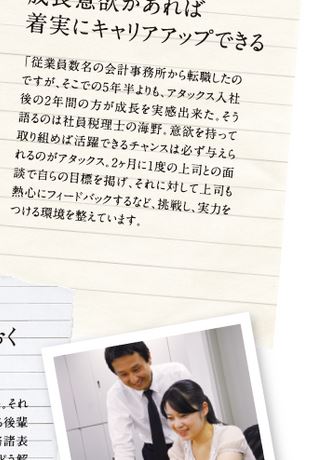 成長意欲があれば
着実にキャリアアップできる
「従業員数名の会計事務所から転職したの
ですが、そこでの5年半よりも、アタックス入社
後の2年間の方が成長を実感出来た。そう
語るのは社員税理士の海野。意欲を持って
取り組めば活躍できるチャンスは必ず与えら
れるのがアタックス。2ヶ月に1度の上司との面
談で自らの目標を掲げ、それに対して上司も
熱心にフィードバックするなど、挑戦し、実力を
つける環境を整えています。
おく
。それ
る後輩
務諸表